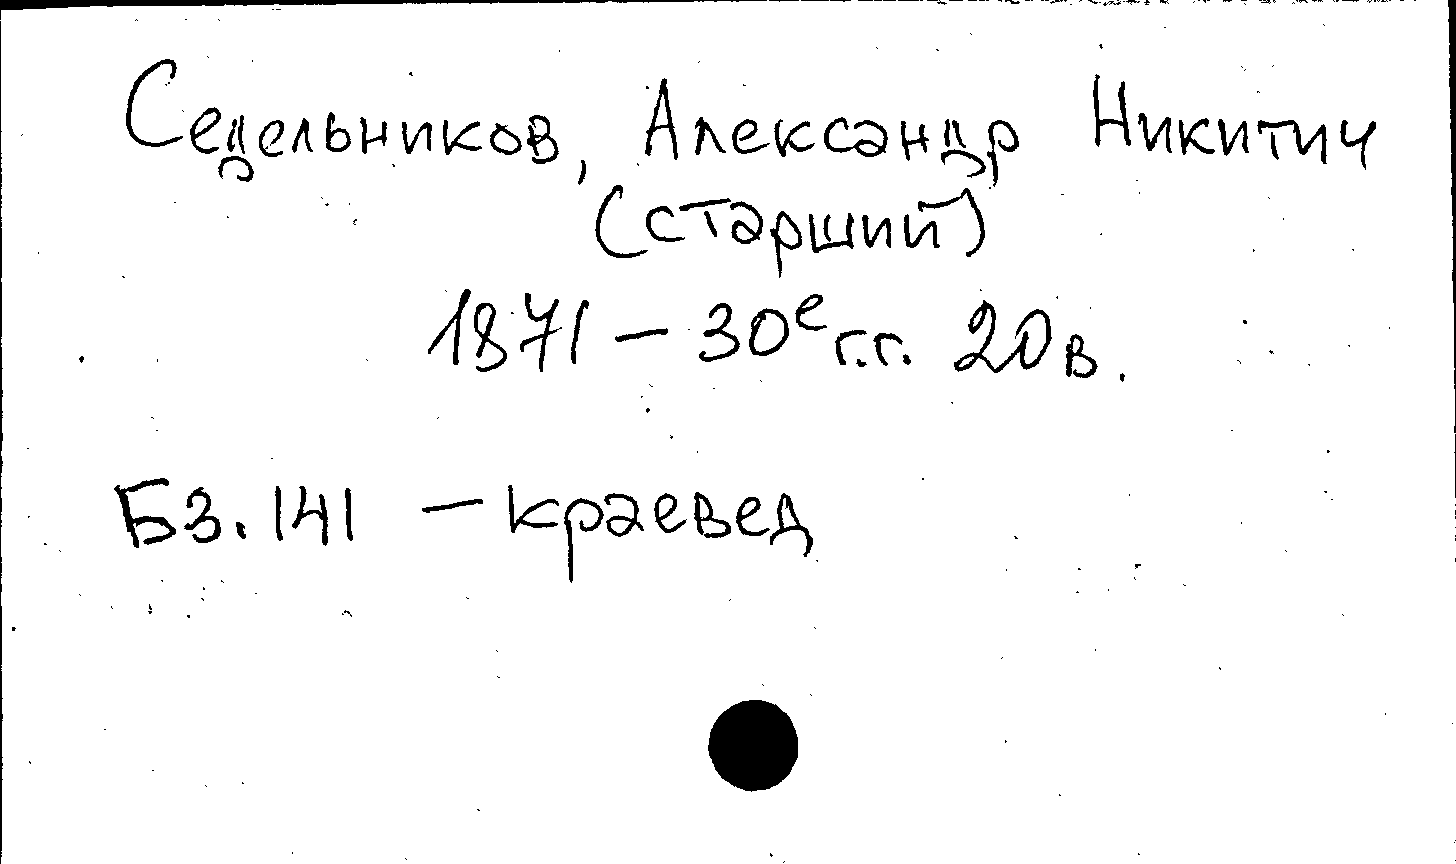 Седельников, Александр Никитич
(старший)
1871 – 30е г.г. 20 в.
Бз. 141 – краевед